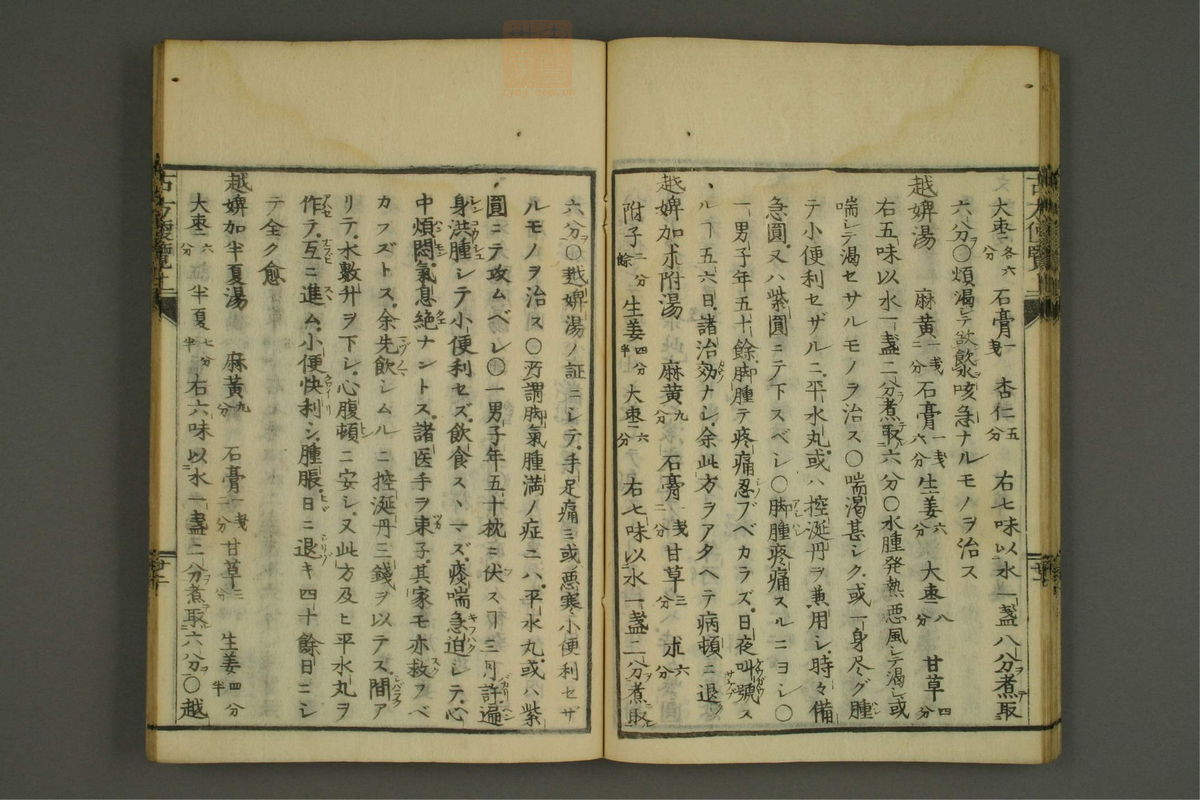 大棗各六分 石膏一戔 杏仁五分 右七味以水一盞八分煮取
六分〇煩渇シテ欲飲水咳急ナルモノヲ治ス
越婢湯 麻黄一戔二分 石膏一戔六分 生姜六分 大棗八分 甘草四分
右五味以水一盞二分煮取六分〇水腫発熱悪風シテ渇シ或
喘シテ渇セサルモノヲ治ス〇喘渇甚シク或ハ一身尽グ腫レ
テ小便利セザルニ平水丸或ハ控涎丹ヲ兼用シ時々備
急圓又ハ紫圓ニテ下スベシ〇脚腫疼痛スルニヨシ〇
一男子年五十餘脚腫テ疼痛忍ブベカラズ日夜叫號ス
ルヿ五六日諸治効ナシ余此方ヲアタヘテ病頓ニ退ク
越婢加朮附湯 麻黄九分 石膏一戔二分 甘草三分 朮六分
附子二分 生姜四分半 大棗六分 右七味以水一盞二分煮取
六分〇越婢湯ノ証ニシテ手足痛ミ或悪寒小便利セザ
ルモノヲ治ス〇所謂脚氣腫満ノ症ニハ平水丸或ハ紫
圓ニテ攻ムベシ〇一男子年五十枕ニ伏スヿ三月許遍
身洪腫シテ小便利セズ飲食スヽマズ痰喘急迫シテ心
中煩悶氣息絶ナントス諸医手ヲ束子其家モ亦救フベ
カラズトス余先飲シムルニ控涎丹三錢ヲ以テス間ア
リテ水數升ヲ下シ心腹頓ニ安シ又此方及ヒ平水丸ヲ
作テ互ニ進ム小便快利シ腫脹日ニ退キ四十餘日ニシ
テ全ク愈
越婢加半夏湯 麻黄九分 石膏一戔二分 甘草三分 生姜四分半
大棗六分 半夏七分半 右六味以水一盞二分煮取六分〇越
古方便覧